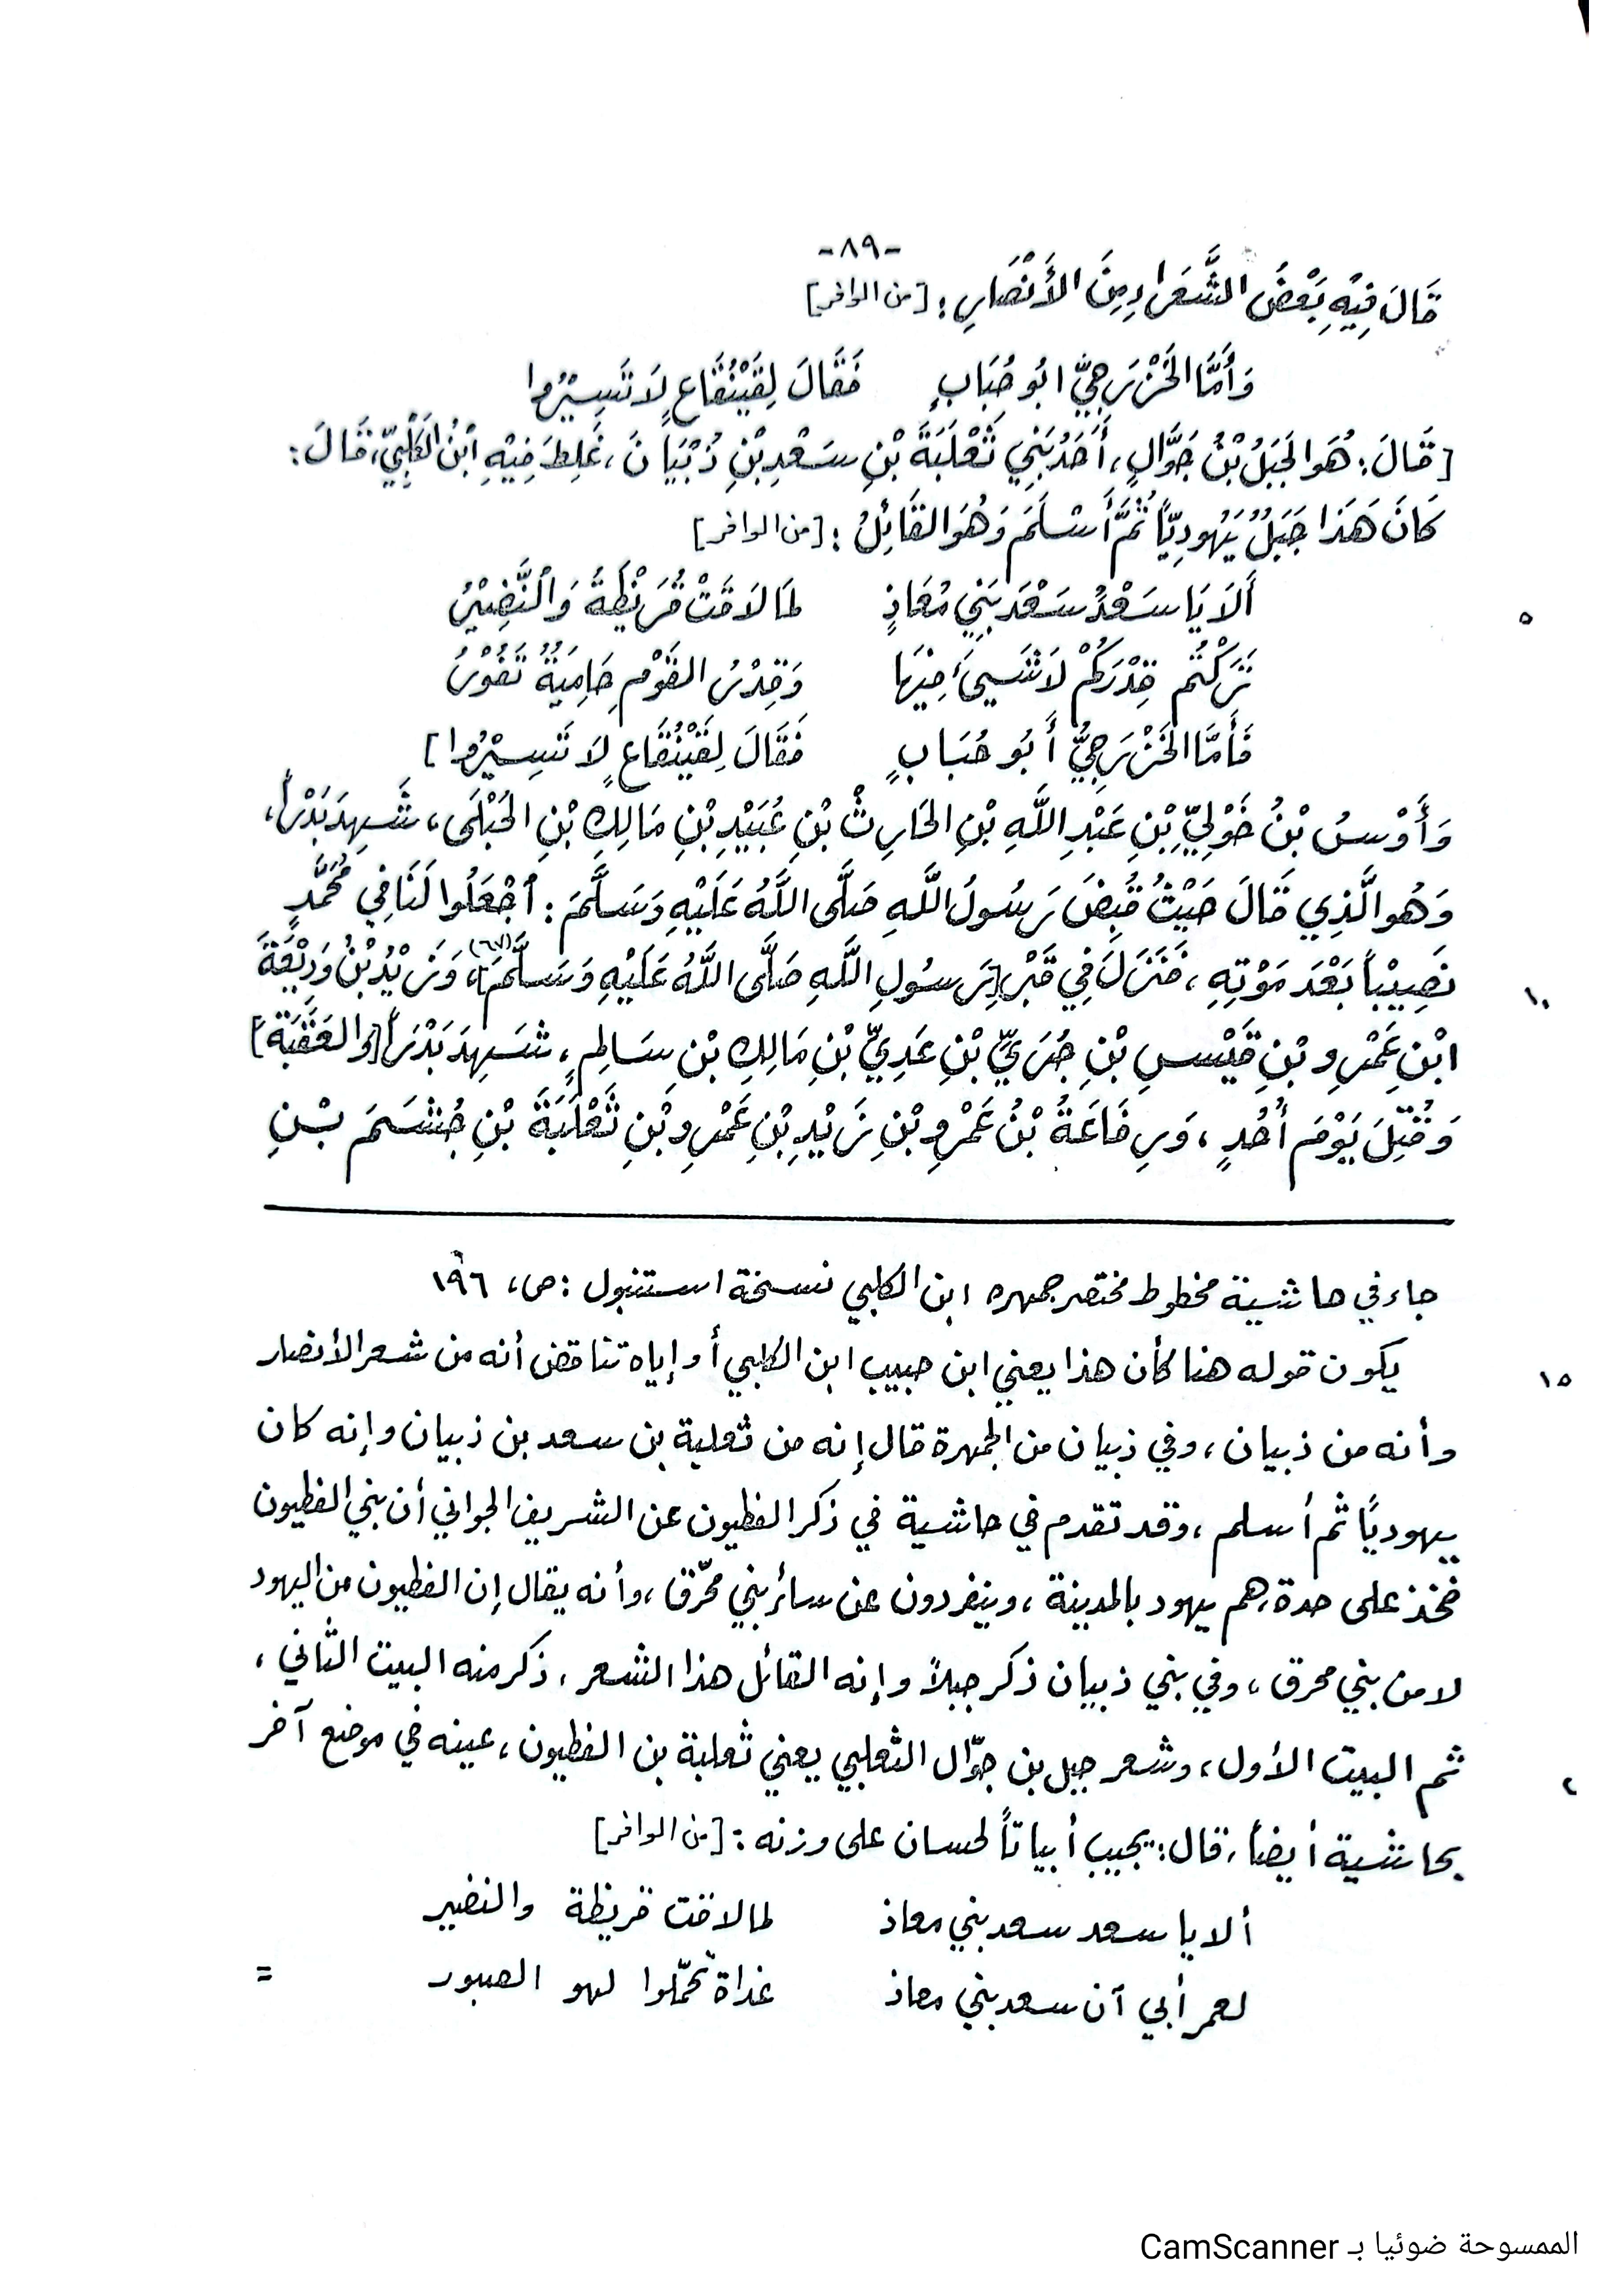 -٨٩-
قَالَ فِيْهِ بَعْضُ الشُّعَرَاءِ مِنَ الأَنْصَارِ: [من الوافر]
وَأَمَّا الخَزْرَجِيُّ ابُو حُبَابٍ فَقَالَ لِقَيْنُقَاعٍ لَا تَسِيْرُوا
[قَالَ: هُوَ الجَبَلُ بْنُ جَوَّالٍ، أَحَدُ بَنِي ثَعْلَبَةَ بْنِ سَعْدِ بْنِ ذُبْيَانَ، غَلِطَ فِيْهِ ابْنُ الكَلْبِيِّ، قَالَ:
كَانَ هَذَا جَبَلٌ يَهُودِيّاً ثُمَّ أَسْلَمَ وَهُوَ القَائِلُ: [من الوافر]
أَلَا يَا سَعْدُ سَعْدَ بَنِي مُعَاذٍ لِمَا لَاقَتْ قُرَيْظَةُ وَالنَّضِيْرُ
٥
تَرَكْتُم قِدْرَكُمْ لَا شَيءَ فِيْهَا وَقِدْرُ القَوْمِ حَامِيَةٌ تَفُوْرُ
فَأَمَّا الخَزْرَجِيُّ أَبُو حُبَابٍ فَقَالَ لِقَيْنُقَاعٍ لَا تَسِيْرُوا]
وَأَوْسُ بْنُ خَوْلِيِّ بْنِ عَبْدِ اللَّهِ بْنِ الحَارِثِ بْنِ عُبَيْدِ بْنِ مَالِكِ بْنِ الحُبْلَى، شَهِدَ بَدْراً،
وَهُوَ الَّذِي قَالَ حَيْثُ قُبِضَ رَسُولُ اللَّهِ صَلَّى اللَّهُ عَلَيْهِ وَسَلَّمَ: اجْعَلُوا لَنَا فِي مُحَمَّدٍ
نَصِيْباً بَعْدَ مَوْتِهِ، فَنَزَلَ فِي قَبْرِ [رَسُولِ اللَّهِ صَلَّى اللَّهُ عَلَيْهِ وَسَلَّمَ](٦٧)، وَزَيْدُ بْنُ وَدِيْعَةَ
١٠
ابْنِ عَمْرِو بْنِ قَيْسِ بْنِ جُرَيِّ بْنِ عَدِيِّ بْنِ مَالِكِ بْنِ سَالِمٍ، شَهِدَ بَدْراً [وَالعَقَبَةَ]
وَقُتِلَ يَوْمَ أُحُدٍ، وَرِفَاعَةُ بْنُ عَمْرِو بْنِ زَيْدِ بْنِ عَمْرِو بْنِ ثَعْلَبَةَ بْنِ جُشَمَ بْنِ
جاء في حاشية مخطوط مختصر جمهرة ابن الكلبي نسخة استنبول: ص، ١٩٦
يكون قوله هنا كأن هذا يعني ابن حبيب ابن الكلبي أو إياه تناقض أنه من شعر الأنصار
١٥
وأنه من ذبيان، وفي ذبيان من الجمهرة قال إنه من ثعلبة بن سعد بن ذبيان وإنه كان
يهوديًا ثم أسلم، وقد تقدم في حاشية في ذكر الفطيون عن الشريف الجواني أن بني الفطيون
فخذ على حدة، هم يهود بالمدينة، وينفردون عن سائر بني محرّق، وأنه يقال إن الفطيون من اليهود
لا من بني محرق، وفي بني ذبيان ذكر جبلاً وإنه القائل هذا الشعر، ذكر منه البيت الثاني،
ثم البيت الأول، وشعر جبل بن جوّال الثعلبي يعني ثعلبة بن الفطيون، عينه في موضع آخر
بحاشية أيضاً، قال: يجيب أبياتاً لحسان على وزنه: [من الوافر]
ألا يا سعد سعد بني معاذ لما لاقت قريظة والنضير
لعمر أبي آن سعد بني معاذ غداة تحمّلوا لهو الصبور
=
الممسوحة ضوئيا بـ CamScanner